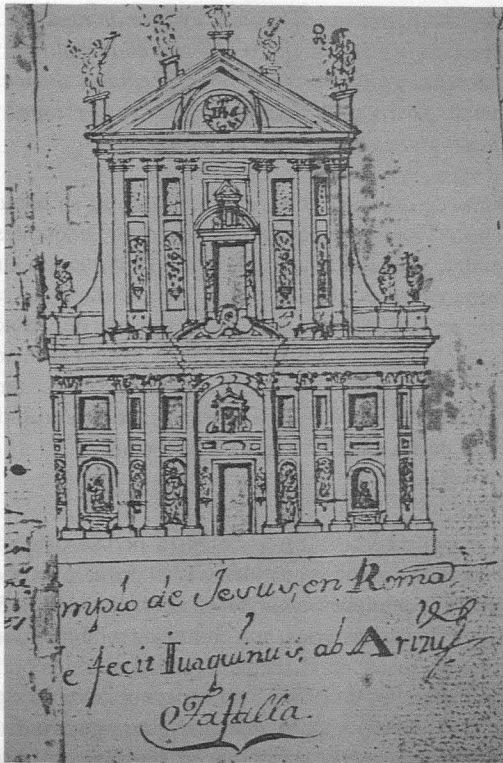 mpío de Jesus, en Roma,
e fecit Iuaquinus, ab Arizu
Tafalla